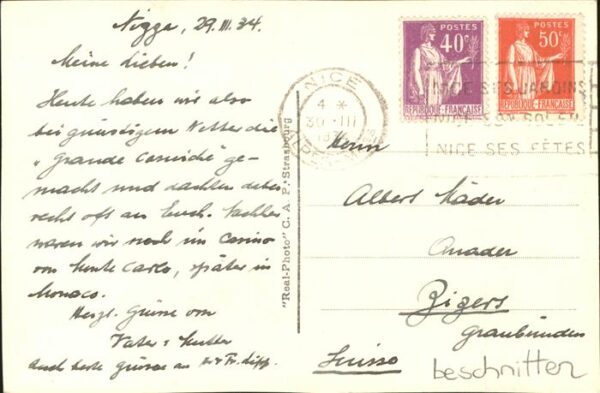 Nizza, 29. III. 34.
Meine Lieben!
Heute haben wir also
bei günstigem Wetter die
"Grande Corniche" ge-
macht und dachten dabei
recht oft an Euch. Nachher
waren wir noch im Casino
von Monte Carlo, später in
Monaco.
Herzl. Grüsse von
Vater & Mutter
Auch beste Grüsse an
"Real-Photo" C. A. P. Strasbourg
NICE
4 *
30 III
POSTES
40c
REPUBLIQUE-FRANÇAISE
POSTES
50c
REPUBLIQUE-FRANÇAISE
NICE SES JARDINS
NICE SON SOLEIL
NICE SES FÊTES
Herrn
Albert Mäder
Zizers
Graubünden
Suisse
beschnitten